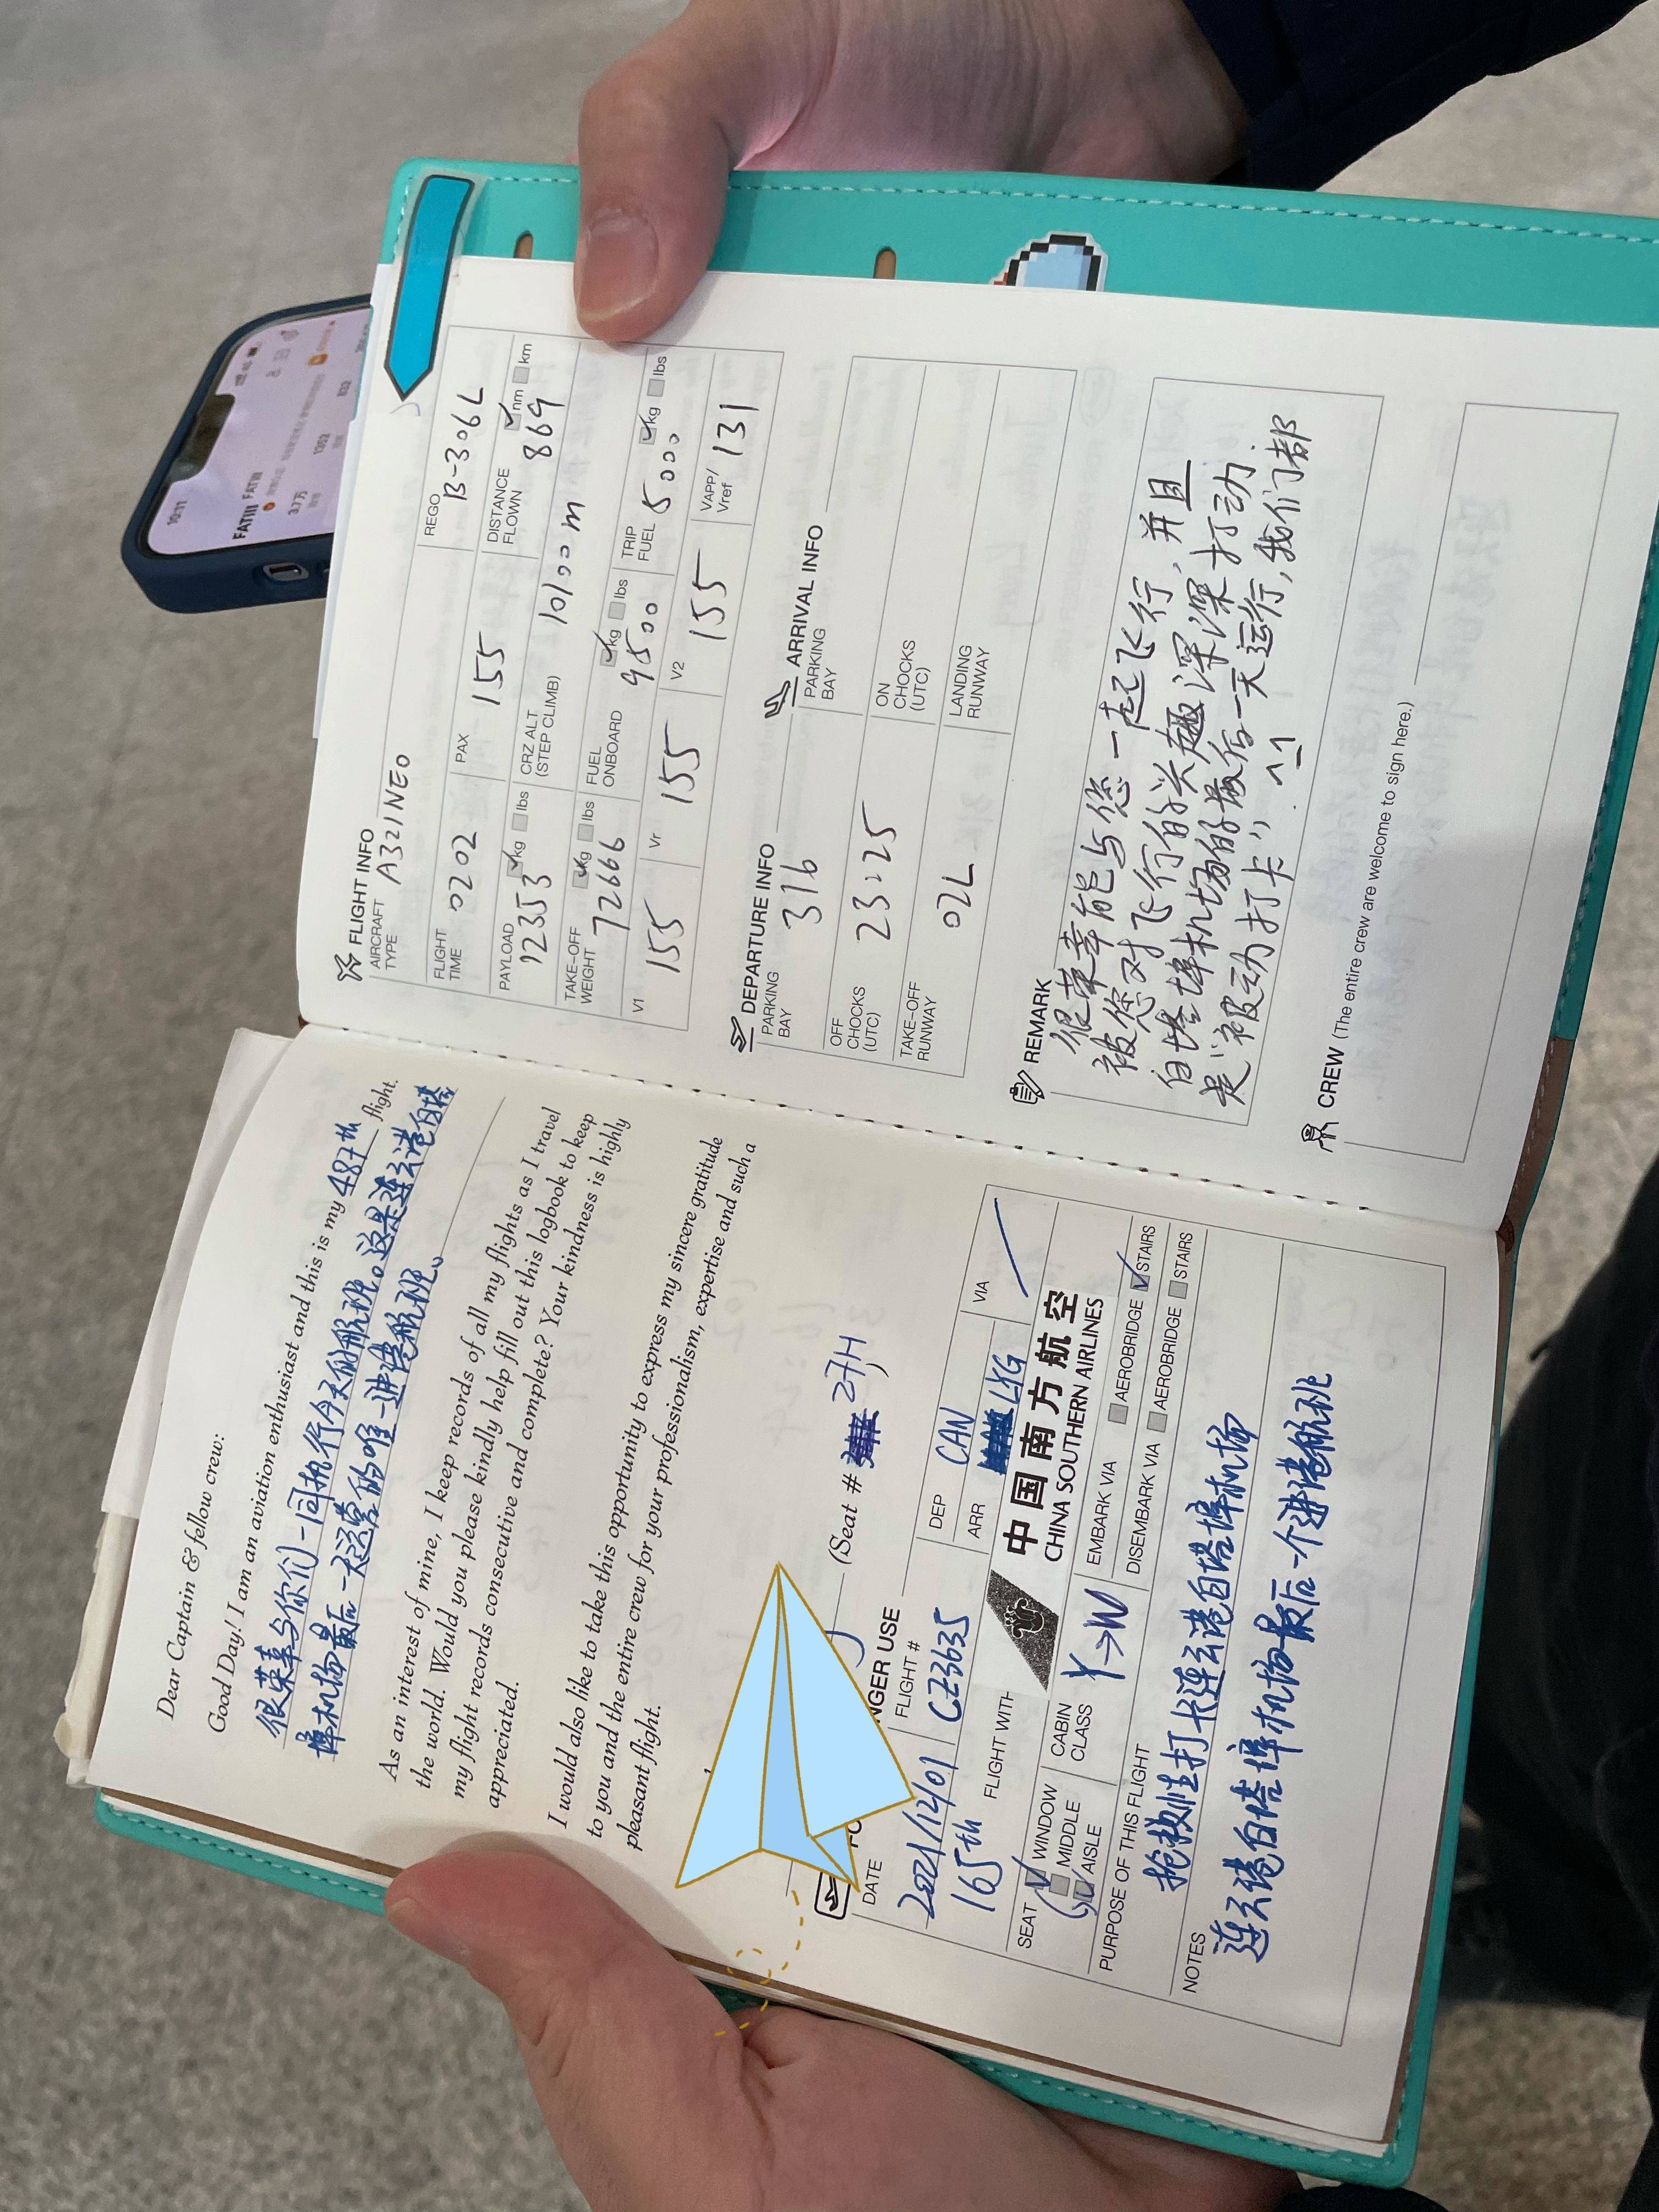 Dear Captain & fellow crew:
Good Day! I am an aviation enthusiast and this is my 487th flight.
很荣幸与你们一同执行今天的航班。这是连云港白塔
埠机场最后一天运营的唯一进港航班。
As an interest of mine, I keep records of all my flights as I travel
the world. Would you please kindly help fill out this logbook to keep
my flight records consecutive and complete? Your kindness is highly
appreciated.
I would also like to take this opportunity to express my sincere gratitude
to you and the entire crew for your professionalism, expertise and such a
pleasant flight.
(Seat # 27H
NGER USE
DATE
2021/12/01
165th
FLIGHT #
CZ3635
DEP CAN
ARR LYG
VIA
FLIGHT WITH
中国南方航空
CHINA SOUTHERN AIRLINES
SEAT
WINDOW
MIDDLE
AISLE
CABIN
CLASS
Y→W
EMBARK VIA AEROBRIDGE STAIRS
DISEMBARK VIA AEROBRIDGE STAIRS
PURPOSE OF THIS FLIGHT
抢救性打卡连云港白塔埠机场
NOTES
连云港白塔埠机场最后一个进港航班
FLIGHT INFO
AIRCRAFT
TYPE
A321NEO
REGO
B-306L
FLIGHT
TIME
0202
PAX
155
DISTANCE
FLOWN
869
nm km
PAYLOAD
12353
kg lbs
CRZ ALT
(STEP CLIMB)
10100m
TAKE-OFF
WEIGHT
72666
kg lbs
FUEL
ONBOARD
9500
kg lbs
TRIP
FUEL
5000
kg lbs
V1
155
Vr
155
V2
155
VAPP/
Vref
131
DEPARTURE INFO
PARKING
BAY
316
OFF
CHOCKS
(UTC)
23:25
TAKE-OFF
RUNWAY
02L
ARRIVAL INFO
PARKING
BAY
ON
CHOCKS
(UTC)
LANDING
RUNWAY
REMARK
很荣幸能与您一起飞行,并且
被您对飞行的兴趣深深打动
白塔埠机场的最后一天运行,我们都
是"被动打卡". ^_^
CREW (The entire crew are welcome to sign here.)
10:11
FATIII FATIII
3.7万